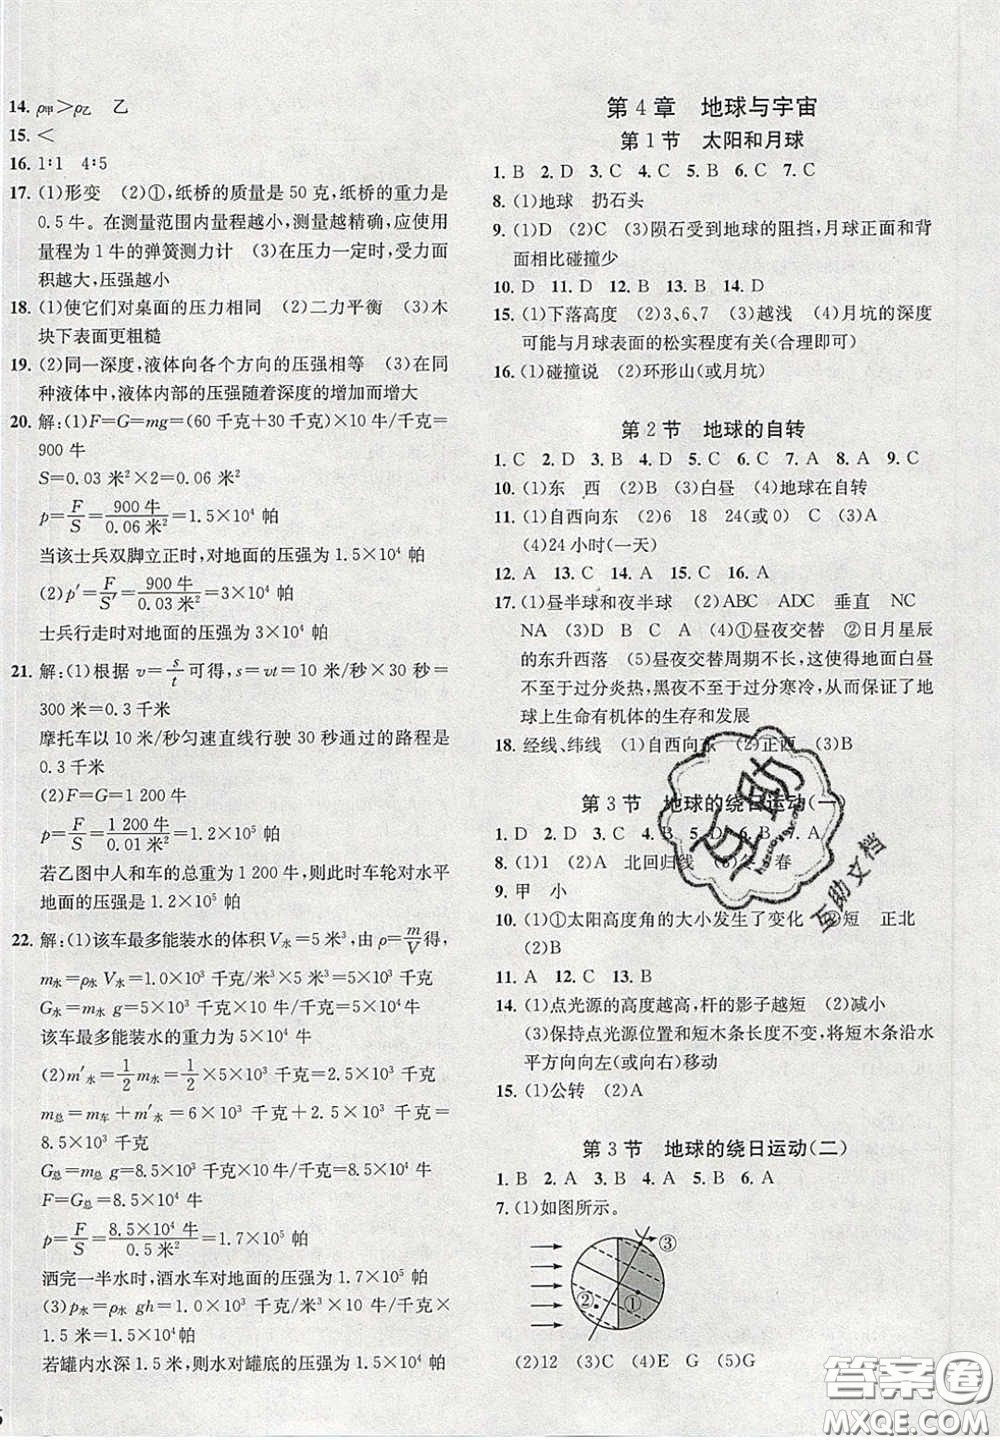 14. ρ甲>ρ乙　乙
15. <
16. 1∶1　4∶5
17. (1)形变　(2)①,纸桥的质量是 50 克,纸桥的重力是
0.5 牛。在测量范围内量程越小,测量越精确,应使用
量程为 1 牛的弹簧测力计　(3)在压力一定时,受力面
积越大,压强越小
18. (1)使它们对桌面的压力相同　(2)二力平衡　(3)木
块下表面更粗糙
19. (2)同一深度,液体向各个方向的压强相等　(3)在同
种液体中,液体内部的压强随着深度的增加而增大
20. 解:(1)F=G=mg=(60 千克+30 千克)×10 牛/千克=
900 牛
S=0.03 米²×2=0.06 米²
p=F/S=900 牛/0.06 米²=1.5×10⁴ 帕
当该士兵双脚立正时,对地面的压强为 1.5×10⁴ 帕
(2)p′=F/S′=900 牛/0.03 米²=3×10⁴ 帕
士兵行走时对地面的压强为 3×10⁴ 帕
21. 解:(1)根据 v=s/t可得,s=vt=10 米/秒×30 秒=
300 米=0.3 千米
摩托车以 10 米/秒匀速直线行驶 30 秒通过的路程是
0.3 千米
(2)F=G=1 200 牛
p=F/S=1 200 牛/0.01 米²=1.2×10⁵ 帕
若乙图中人和车的总重为 1 200 牛,则此时车轮对水平
地面的压强为 1.2×10⁵ 帕
22. 解:(1)该车最多能装水的体积 V水=5 米³,由 ρ=m/V得,
m水=ρ水 V水=1.0×10³ 千克/米³×5 米³=5×10³ 千克
G水=m水 g=5×10³ 千克×10 牛/千克=5×10⁴ 牛
该车最多能装水的重力为 5×10⁴ 牛
(2)m′水=1/2m水=1/2×5×10³ 千克=2.5×10³ 千克
m总=m车+m′水=6×10³ 千克+2.5×10³ 千克=
8.5×10³ 千克
G总=m总 g=8.5×10³ 千克×10 牛/千克=8.5×10⁴ 牛
F=G总=8.5×10⁴ 牛
p=F/S=8.5×10⁴ 牛/0.5 米²=1.7×10⁵ 帕
洒完一半水时,洒水车对地面的压强为 1.7×10⁵ 帕
(3)p水=ρ水 gh=1.0×10³ 千克/米³×10 牛/千克×
1.5 米=1.5×10⁴ 帕
若罐内水深 1.5 米,则水对罐底的压强为 1.5×10⁴ 帕
第 4 章　地球与宇宙
第 1 节　太阳和月球
1. B　2. D　3. C　4. C　5. D　6. C　7. C
8. (1)地球　扔石头
9. (1)D　(2)C　(3)陨石受到地球的阻挡,月球正面和背
面相比碰撞少
10. D　11. D　12. B　13. B　14. D
15. (1)下落高度　(2)3、6、7　(3)越浅　(4)月坑的深度
可能与月球表面的松实程度有关(合理即可)
16. (1)碰撞说　(2)环形山(或月坑)
第 2 节　地球的自转
1. C　2. D　3. D　4. B　5. C　6. C　7. A　8. A　9. C
10. (1)东　西　(2)B　(3)白昼　(4)地球在自转
11. (1)自西向东　(2)6　18　24(或 0)　(3)A
(4)24 小时(一天)
12. A　13. C　14. A　15. C　16. A
17. (1)昼半球和夜半球　(2)ABC　ADC　垂直　NC
NA　(3)B　(4)①昼夜交替　②日月星辰
的东升西落　(5)昼夜交替周期不长,这使得地面白昼
不至于过分炎热,黑夜不至于过分寒冷,从而保证了地
球上生命有机体的生存和发展
18. 经线、纬线　(1)自西向东　(2)正西　(3)B
第 3 节　地球的绕日运动(一)
1. D　2. D　3. C　4. B　5. D　6. B　7. A
8. (1)1　(2)A　北回归线　(3)冬　春
9. 甲　小
10. (1)①太阳高度角的大小发生了变化　②短　正北
(2)B
11. A　12. C　13. B
14. (1)点光源的高度越高,杆的影子越短　(2)减小
(3)保持点光源位置和短木条长度不变,将短木条沿水
平方向向左(或向右)移动
15. (1)公转　(2)A
第 3 节　地球的绕日运动(二)
1. B　2. A　3. B　4. A　5. B　6. A
7. (1)如图所示。
③
②　①
(2)12　(3)C　(4)E　G　(5)G
互助
互助文档
答案圈
MXQE.COM